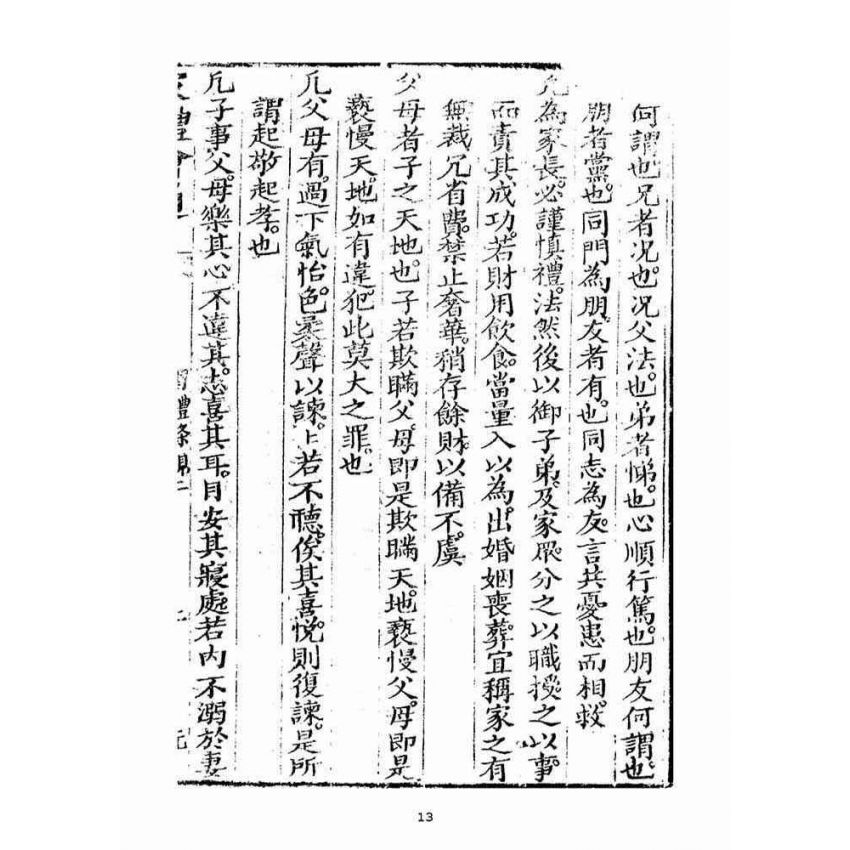 何謂也兄者况也况父法也弟者悌也心順行篤也朋友何謂也
朋者黨也同門為朋友者有也同志為友言共憂患而相救
凢為家長必謹慎禮法然後以御子弟及家眾分之以職授之以事
而責其成功若財用飲食當量入以為出婚姻喪葬宜稱家之有
無裁冗省費禁止奢華稍存餘財以備不虞
父母者子之天地也子若欺瞞父母即是欺瞞天地褻慢父母即是
褻慢天地如有違犯此莫大之罪也
凢父母有過下氣怡色柔聲以諫上若不聽俟其喜悅則復諫是所
謂起敬起孝也
凢子事父母樂其心不違其志喜其耳目安其寢處若內不溺於妻
禮條
13